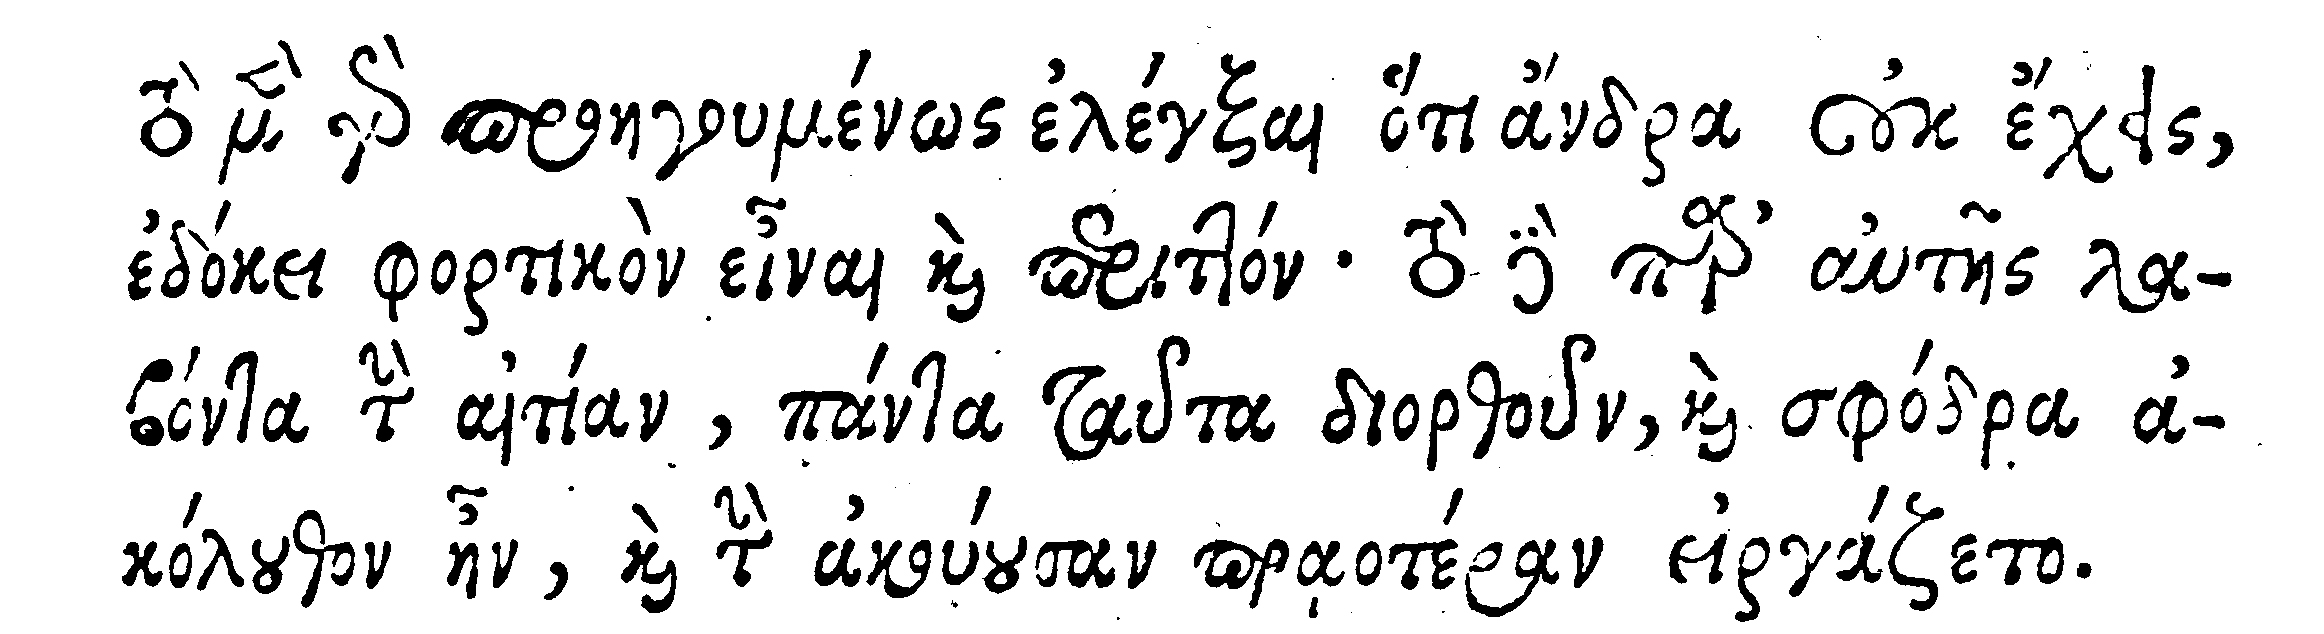 τὸ μὲν γὰρ προηγουμένως ἐλέγξαι ὅτι ἄνδρα οὐκ ἔχεις,
ἐδόκει φορτικὸν εἶναι καὶ περιττόν· τὸ δὲ παρ’ αὐτῆς λα-
βόντα τὴν αἰτίαν, πάντα ταῦτα διορθοῦν, καὶ σφόδρα ἀ-
κόλουθον ἦν, καὶ τὴν ἀκούουσαν πραοτέραν εἰργάζετο.